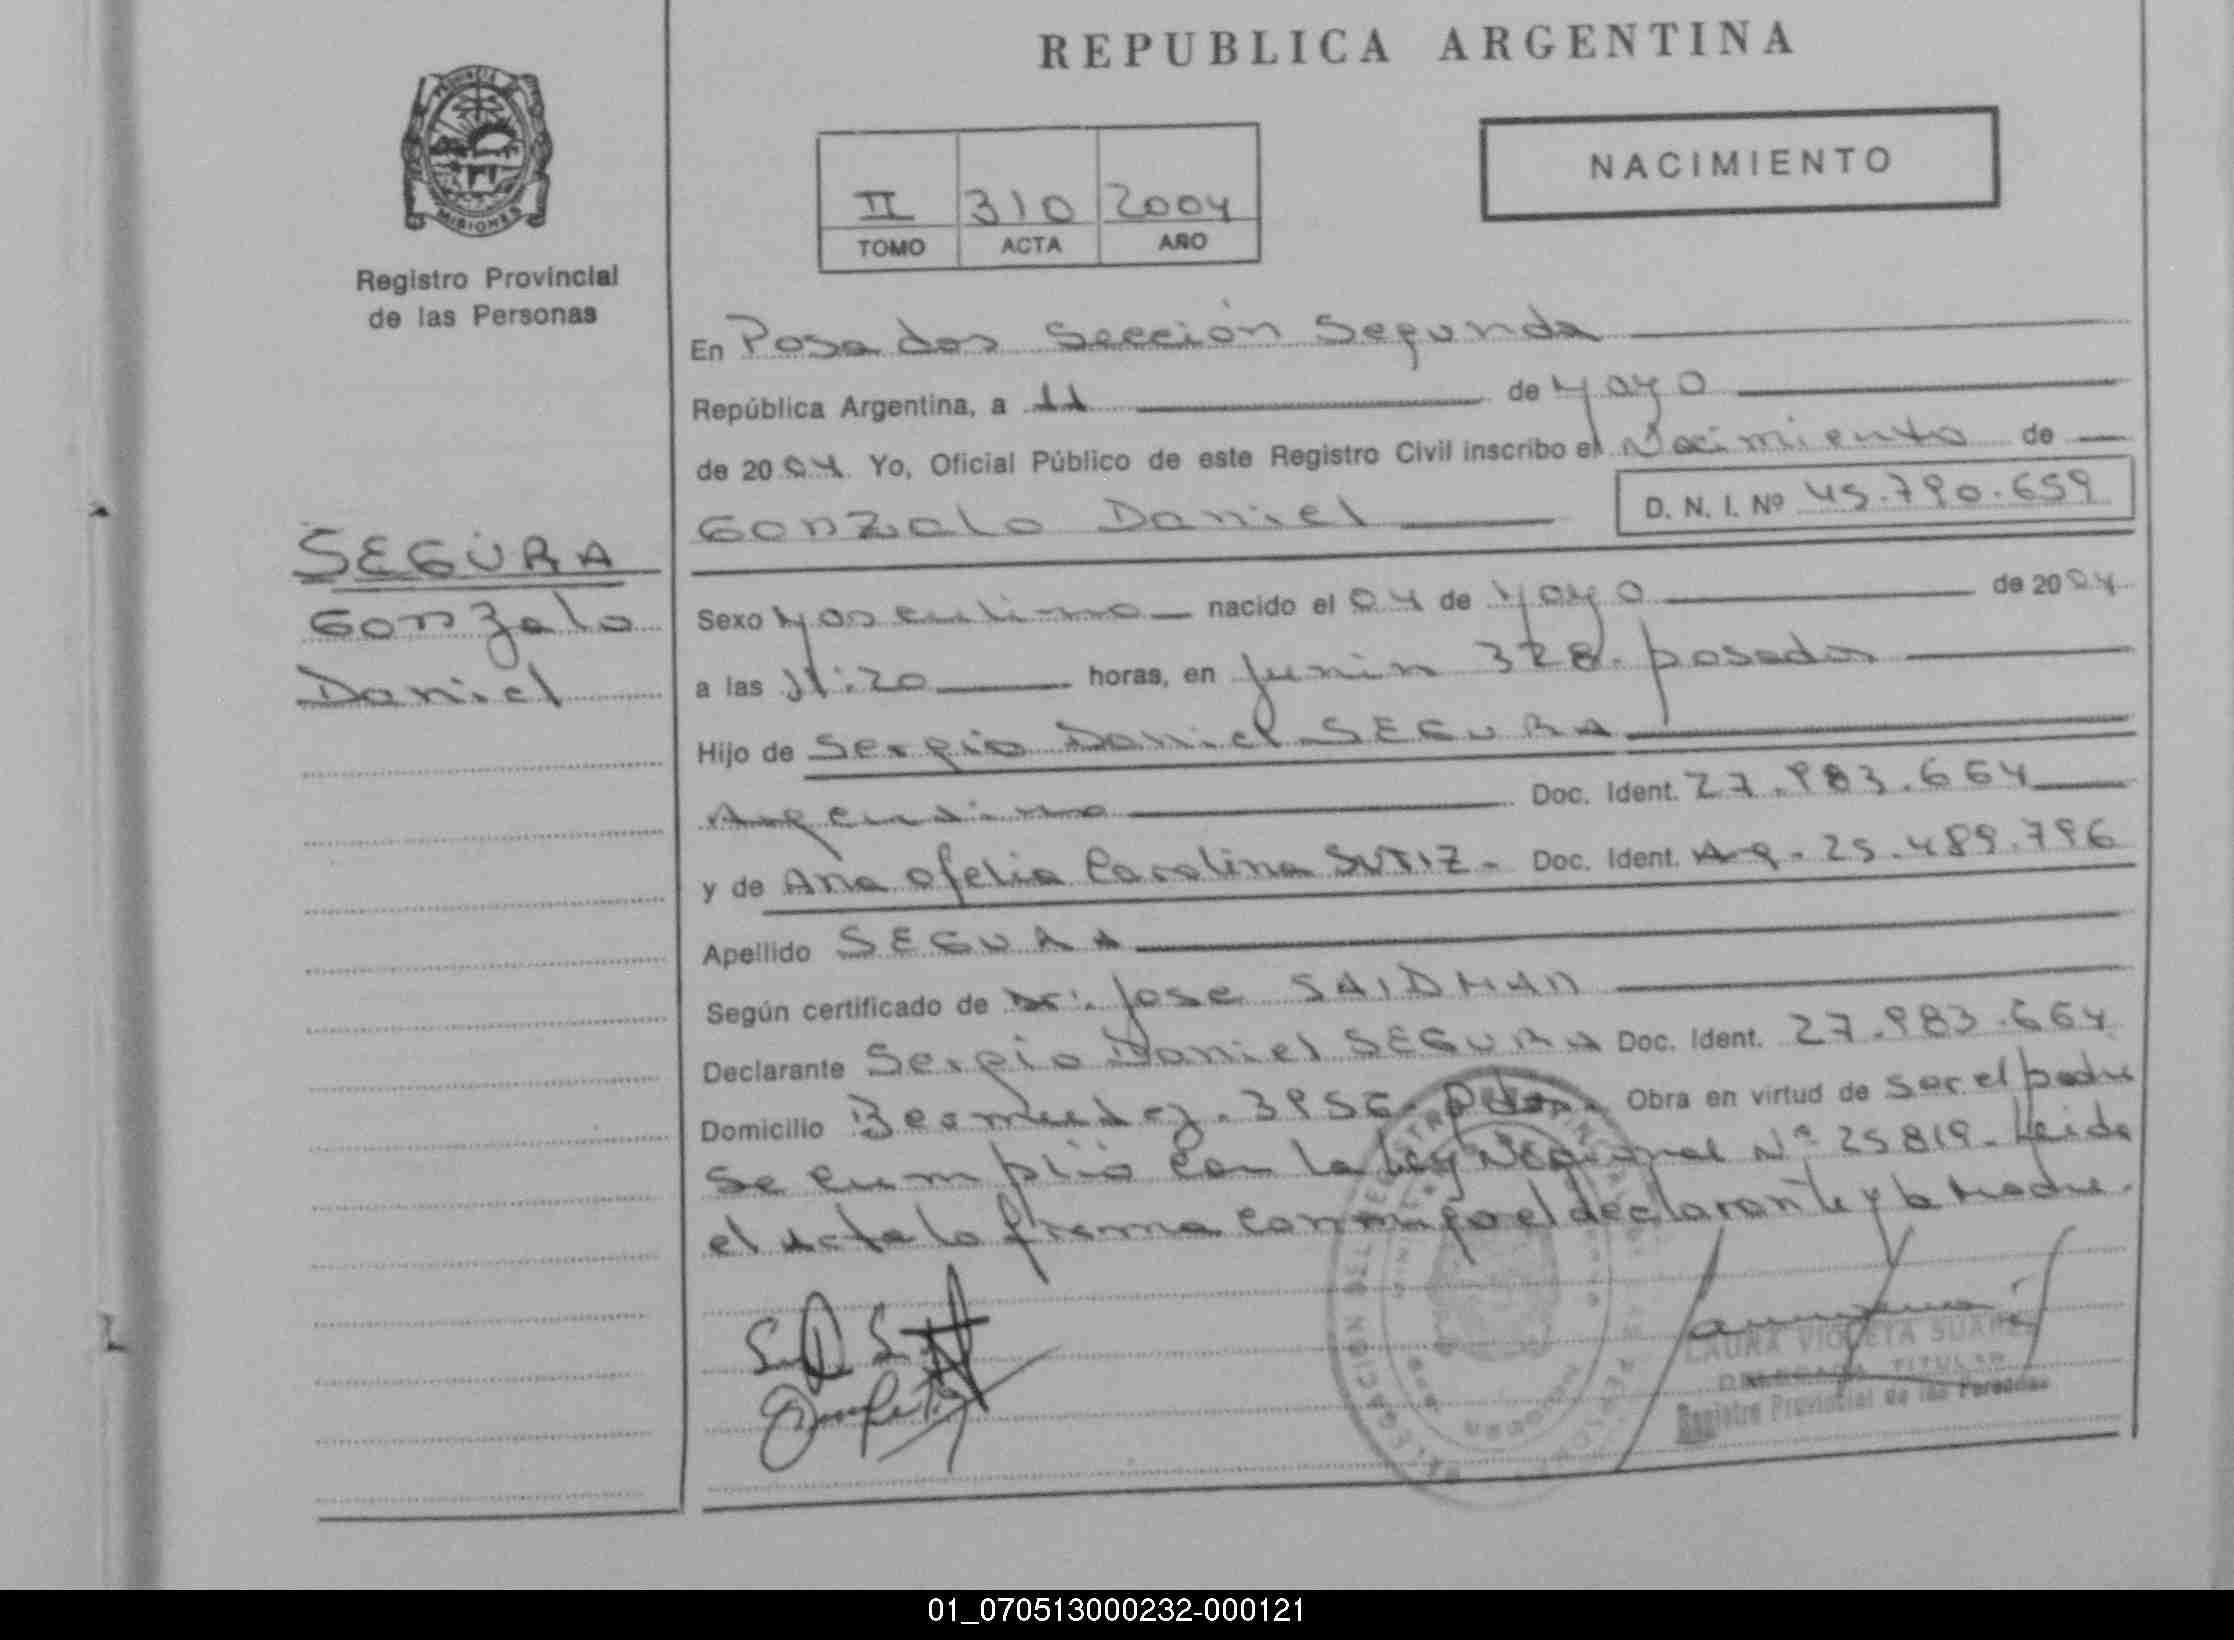 REPUBLICA ARGENTINA
PROVINCIA
MISIONES
Registro Provincial
de las Personas
NACIMIENTO
II 310 2004
TOMO ACTA AÑO
En Posadas Sección Segunda
República Argentina, a 11 de Mayo
de 2004 Yo, Oficial Público de este Registro Civil inscribo el Nacimiento de
Gonzalo Daniel
D. N. I. Nº 45.790.659
SEGURA
Gonzalo
Daniel
Sexo Masculino nacido el 04 de Mayo de 2004
a las 11:20 horas, en Junin 328. posadas
Hijo de Sergio Daniel SEGURA
Argentino Doc. Ident. 27.983.664
y de Ana Ofelia Carolina SUTIZ - Doc. Ident. Ar. 25.489.796
Apellido SEGURA
Según certificado de Dr. Jose SAIDMAN
Declarante Sergio Daniel SEGURA Doc. Ident. 27.983.664
Domicilio Bermudez. 3956. Obra en virtud de ser el padre
se cumplió con la Ley Nacional Nº 25819. Leida
el acta la firma conmigo el declarante y la Madre.
LAURA VIOLETA SUAREZ
DELEGADA TITULAR
Registro Provincial de las Personas
01_070513000232-000121